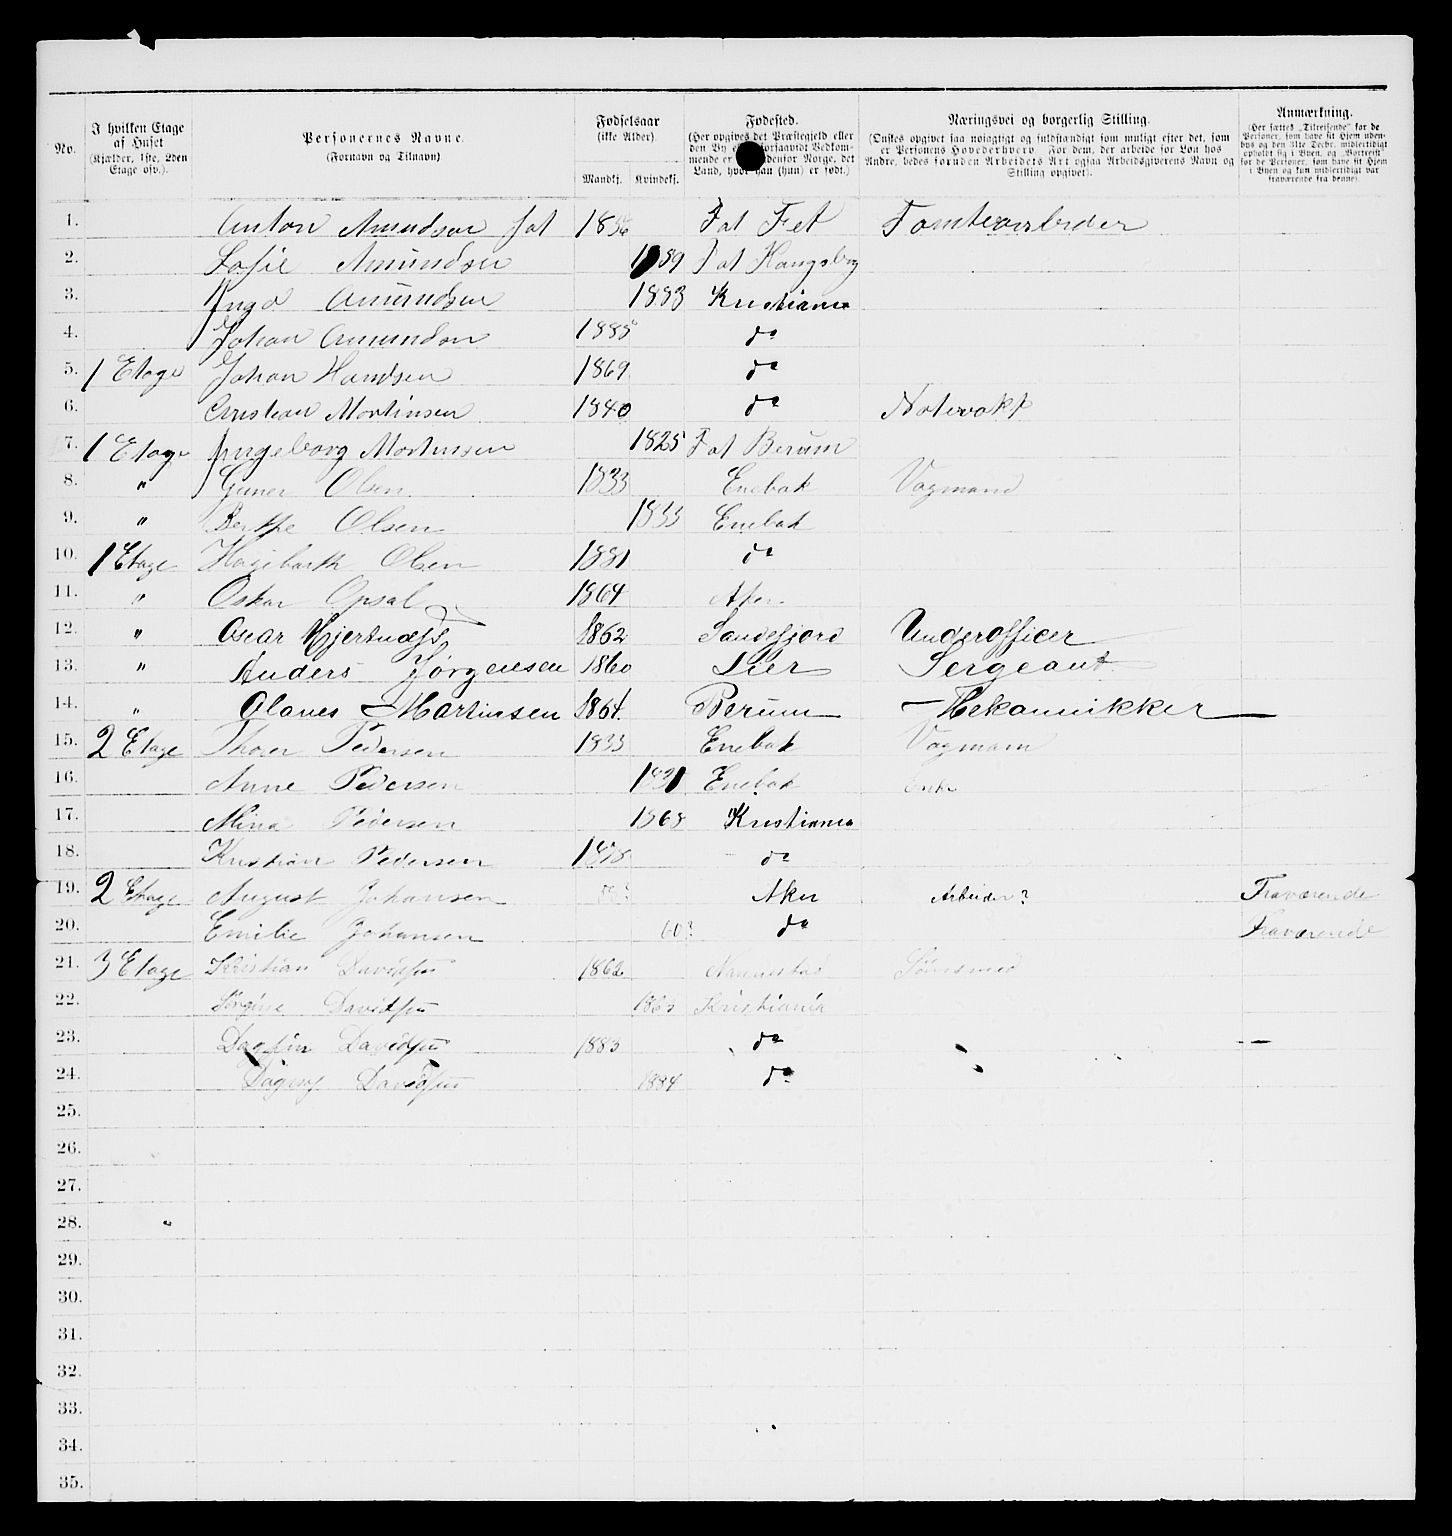 No.
I hvilken Etage af Huset
(Kjælder, 1ste, 2den Etage osv.).
Personernes Navne.
(Fornavn og Tilnavn)
Fødselsaar
(ikke Alder).
Mandkj. Kvindekj.
Fødested.
(Her opgives det Præstegjeld eller
den By forsaavidt Vedkom-
mende er udenfor Norge, det
Land, hvor han (hun) er født.)
Næringsvei og borgerlig Stilling.
(Ønskes opgivet saa nøiagtigt og fuldstændigt som muligt efter det, som
er Personens Hovederhverv. For dem, der arbeide for Løn hos
Andre, bedes foruden Arbeidets Art ogsaa Arbeidsgiverens Navn og
Stilling opgivet).
Anmærkning.
(Her sættes „Tilreisende" for de
Personer, som have sit Hjem uden-
bys og den 31te Decbr. midlertidigt
opholdt sig i Byen, og „Bortreist"
for de Personer, som have sit Hjem
i Byen og kun midlertidigt var
fraværende fra denne)
1. Anton Amundsen fot 1856 Fot Fet
2. Sofie Amundsen Fot
3. Inga Amundsen 1883 Kristiania
4. Johan Amundsen 1885 do
5. 1 Etage Johan 1869 do
6. Christian Mortinsen 1840 do
7. 1 Etage Ingeborg Mortinsen 1825 Fot Berum
8. " Guner Olsen 1833 Enebak Vogmand
9. " Berthe Olsen 1833 Enebak
10. 1 Etage Hagebarth Olsen 1881 do
11. " Oskar Opsal 1864 Aker
12. " Oscar Hjertnæss 1862 Sandefjord Underofficer
13. " Anders Jørgensen 1860 Lier Sergeant
14. " Olaves Martinsen 1864. Berum Mekannikker
15. 2 Etage Thoer Pedersen 1833 Enebak Vogmann
16. Anne Pedersen Enebak
17. Mina Pedersen 1868 Kristiania
18. Kristian Pedersen 1878 do
19. 2 Etage August Johansen Aker Arbeider? Fraværende
20. Emilie Johansen 60? do Fraværende
21. 3 Etage Kristian Davidsen 1862
22. Jørgine Davidsen 1863 Kristiania
23. Dagfin Davidsen 1883 do
24. Dagny Davidsen 1884 do
25.
26.
27.
28.
29.
30.
31.
32.
33.
34.
35.